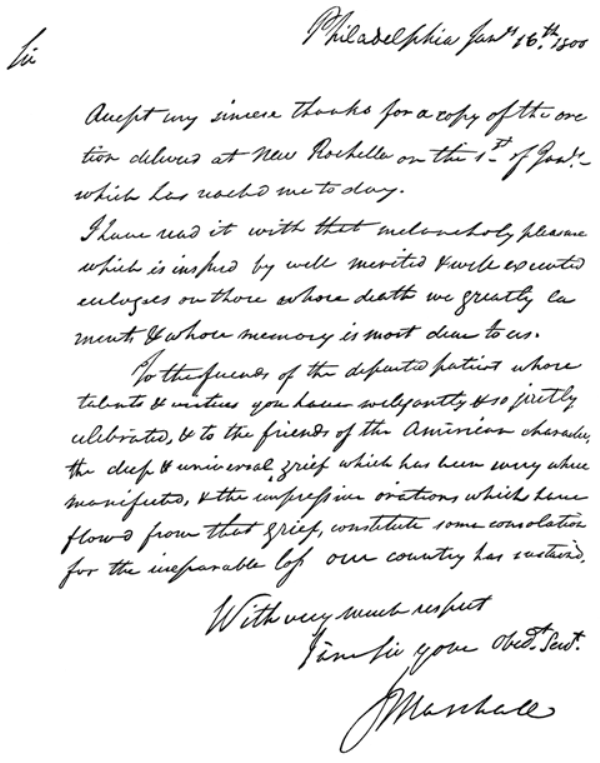 Philadelphia Jany. 16.th 1800
Sir
Accept my sincere thanks for a copy of the ora
tion deliverd at New Rochelle on the 1st. of Jany.
which has reachd me to day.
I have read it with that melancholy pleasure
which is inspired by well merited & well executed
eulogies on those whose death we greatly la
ment & whose memory is most dear to us.
To the friends of the departed patriot whose
talents & virtues you have so elegantly & so justly
celebrated, & to the friends of the American character,
the deep & universal grief which has been every where
manifested, & the impressive orations which have
flowd from that grief, constitute some consolation
for the irreparable loss our country has sustaind.
With very much respect
I am Sir your Obedt. Servt.
J Marshall